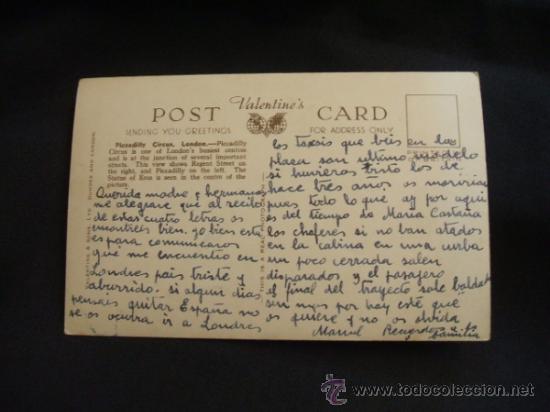 POST Valentine's CARD
SENDING YOU GREETINGS
FOR ADDRESS ONLY
Piccadilly Circus, London.—Piccadilly
Circus is one of London's busiest centres
and is at the junction of several important
streets. This view shows Regent Street on
the right, and Piccadilly on the left. The
Statue of Eros is seen in the centre of the
picture.
Querida madre y hermanos
me alegrare que al recibo
de estas cuatro letras os
encontreis bien. yo bien esta
es para comunicaros
que me encuentro en
Londres pais triste y
aburrido. si algun dias
pensais quitar España no
se os ocurra ir a Londres
los taxsis que béis en las
plaza son ultimo modelo
si hubieras visto los de
hace tres anos os moririais
pues todo lo que ay por aqui
es del tiempo de Maria Castaña
los choferes si no ban atados
en la cabina en una curba
un poco cerrada salen
disparados y el pasajero
el final del trayecto sale baldado
sin mas por hoy este que
os quiere y no os olvida
Manuel Recuerdos a la
familia
THIS IS A REAL PHOTOGRAPH
& SONS, LTD. DUNDEE AND LONDON
http://www.todocoleccion.net